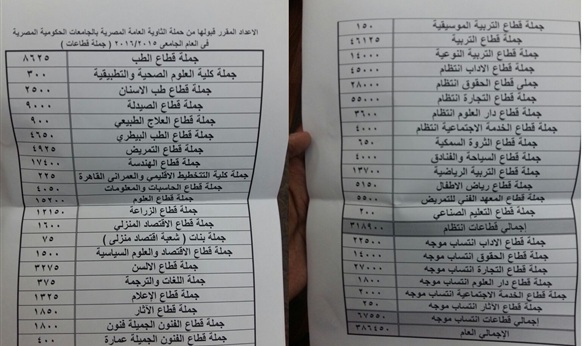 الاعداد المقرر قبولها من حملة الثانوية العامة المصرية بالجامعات الحكومية المصرية
في العام الجامعى ٢٠١٦/٢٠١٥ ( جملة قطاعات )
جملة قطاع الطب ٨٦٢٥
جملة كلية العلوم الصحية والتطبيقية ٣٠٠
جملة قطاع طب الاسنان ٢٥٠٠
جملة قطاع الصيدلة ٩٠٠٠
جملة قطاع العلاج الطبيعي ٩٠٠
جملة قطاع الطب البيطري ٤٦٥٠
جملة قطاع التمريض ٤٩٢٥
جملة قطاع الهندسة ١٧٤٠٠
جملة كلية التخطيط الاقليمي والعمرانى القاهرة ٢٢٥
جملة قطاع الحاسبات والمعلومات ٤٠٥٠
جملة قطاع العلوم ١٥٢٠٠
جملة قطاع الزراعة ١٢١٥٠
جملة قطاع الاقتصاد المنزلي ١٦٠٠
جملة بنات ( شعبة اقتصاد منزلى ) ٧٥
جملة قطاع الاقتصاد والعلوم السياسية ١٥٠٠
جملة قطاع الالسن ٣٢٧٥
جملة اللغات والترجمة ٣٧٥
جملة قطاع الإعلام ١٣٢٥
جملة قطاع الآثار ١٨٥٠
جملة قطاع الفنون الجميلة فنون ١٨٠٠
جملة قطاع الفنون الجميلة عمارة ٤٠٠
جملة قطاع التربية الموسيقية ١٥٠
جملة قطاع التربية ٤٦١٢٥
جملة قطاع التربية النوعية ١٤٠٠٠
جملة قطاع الاداب انتظام ٤٥٠٠٠
جملى قطاع الحقوق انتظام ٢٨٠٠٠
جملة قطاع التجارة انتظام ٥٥٠٠٠
جملة قطاع دار العلوم انتظام ٣٦٠٠
جملة قطاع الخدمة الاجتماعية انتظام ٤٠٠٠
جملة قطاع الثروة السمكية ٦٥٠
جملة قطاع السياحة والفنادق ٤٠٠٠
جملة قطاع التربية الرياضية ١٣٧٠٠
جملة قطاع رياض الاطفال ٥١٥٠
جملة قطاع المعهد الفني للتمريض ٥٥٠٠
جملة قطاع التعليم الصناعي ٢٠٠
إجمالي قطاعات انتظام ٣١٨٩٠٠
جملة قطاع الاداب انتساب موجه ٢٢٥٠٠
جملة قطاع الحقوق انتساب موجه ١٤٠٠٠
جملة قطاع التجارة انتساب موجه ٢٧٠٠٠
جملة قطاع دار العلوم انتساب موجه ١٨٠٠
جملة قطاع الخدمة الاجتماعية انتساب موجه ٢٠٠٠
جملة قطاع الآثار انتساب موجه ٢٥٠
إجمالي قطاعات انتساب موجه ٦٧٥٥٠
الإجمالي العام ٣٨٦٤٥٠